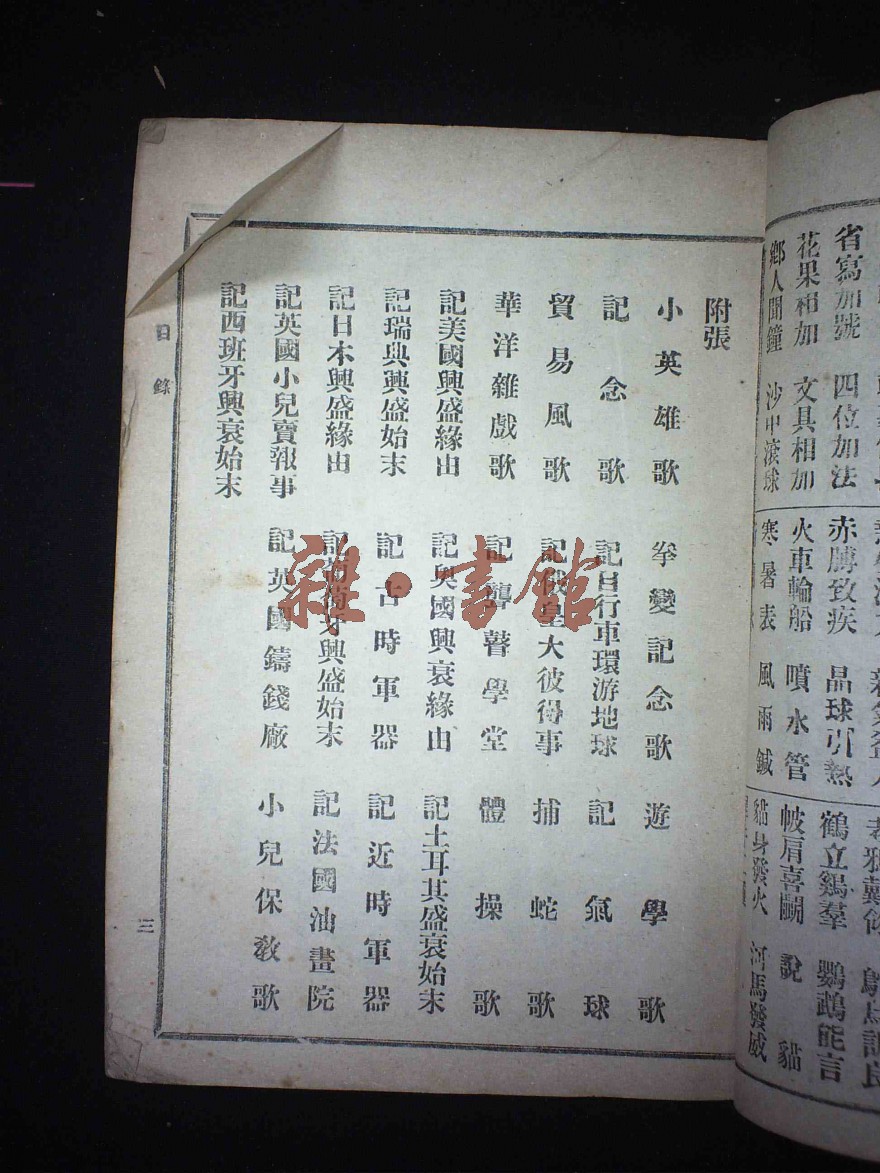 省寫加號 四位加法 赤膊致疾 晶球引熱 鶴立鷄羣 鸚鵡能言
花果相加 文具相加 火車輪船 噴水管 帔肩喜鬭 說貓
鄉人聞鐘 沙中滾球 寒暑表 風雨鍼 貓身發火 河馬發威
附張
小英雄歌 拳變記念歌 遊學歌
記念歌 記自行車環游地球 記氣球
貿易風歌 記俄皇大彼得事 捕蛇歌
華洋雜戲歌 記聾瞽學堂 體操歌
記美國興盛緣由 記奧國興衰緣由 記土耳其盛衰始末
記瑞典興盛始末 記古時軍器 記近時軍器
記日本興盛緣由 記葡萄牙興盛始末 記法國油畫院
記英國小兒賣報事 記英國鑄錢廠 小兒保教歌
記西班牙興衰始末
目錄 三
雜·書館